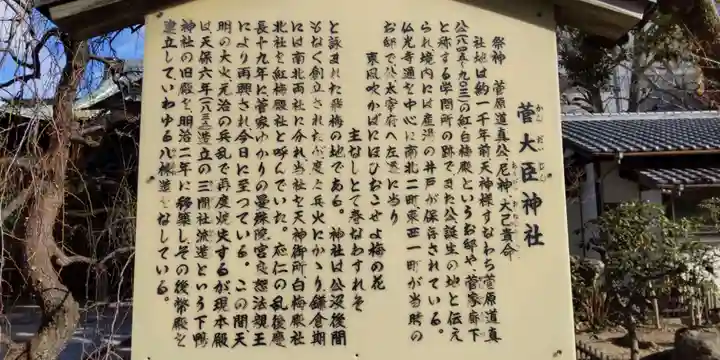 菅大臣神社
かんだいじん
祭神　菅原道真公、尼神、大己貴命
おおなむちのみこと
社地は約一千年前天神様すなわち菅原道真
公(八四五〜九〇三)の紅白梅殿というお邸や、菅家廊下
と称する学問所の跡でまた公誕生の地と伝え
られ境内には産湯の井戸が保存されている。
仏光寺通を中心に南北二町東西一町が当時の
お邸で、公太宰府へ左遷に当り
東風吹かばにほひおこせよ梅の花
主なしとて春なわすれそ
と詠まれた飛梅の地である。神社は公没後間
もなく創立されたが度々兵火にかゝり鎌倉期
には南北両社に分れ当社を天神御所白梅殿社
北社を紅梅殿社と呼んでいた。応仁の乱後慶
長十九年に菅家ゆかりの曼殊院宮良恕法親王
により再興され今日に至っている。この間、天
明の大火、元治の兵乱で再度焼失するが現本殿
は天保六年(一八三五)造立の三間社流造という下鴨
神社の旧殿を、明治二年に移築し、その後幣殿を
建立していわゆる八棟造をなしている。